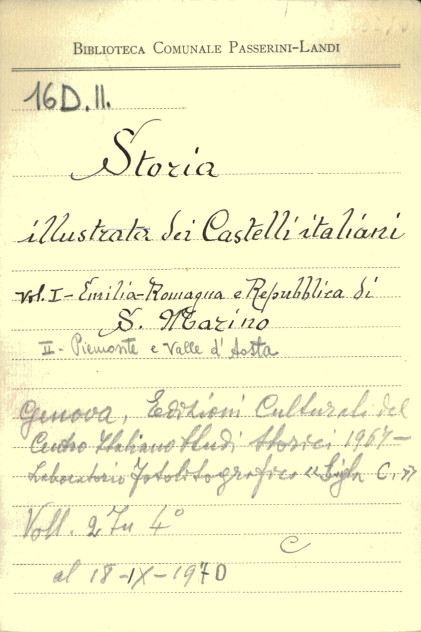 BIBLIOTECA COMUNALE PASSERINI-LANDI
16D.II.
Storia
illustrata dei Castelli italiani
Vol. I - Emilia-Romagna e Repubblica di
S. Marino
II - Piemonte e Valle d'Aosta
Genova, Edizioni Culturali del
Centro Italiano Studi Storici 1967 -
Laboratorio Fotolitografico "Sigla C,"
Voll. 2 In 4°
C
al 18-IX-1970